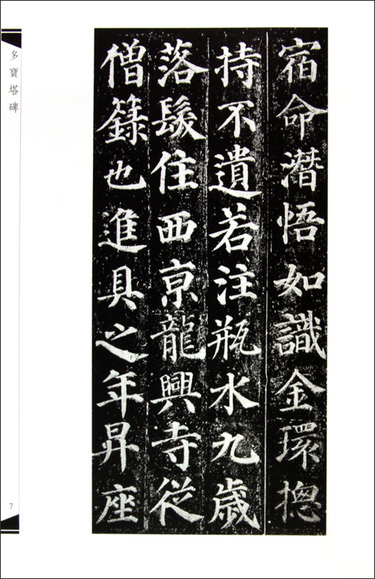 宿命潛悟如識金環揔
持不遺若注瓶水九歲
落髮住西京龍興寺從
僧籙也進具之年昇座
多寶塔碑
7